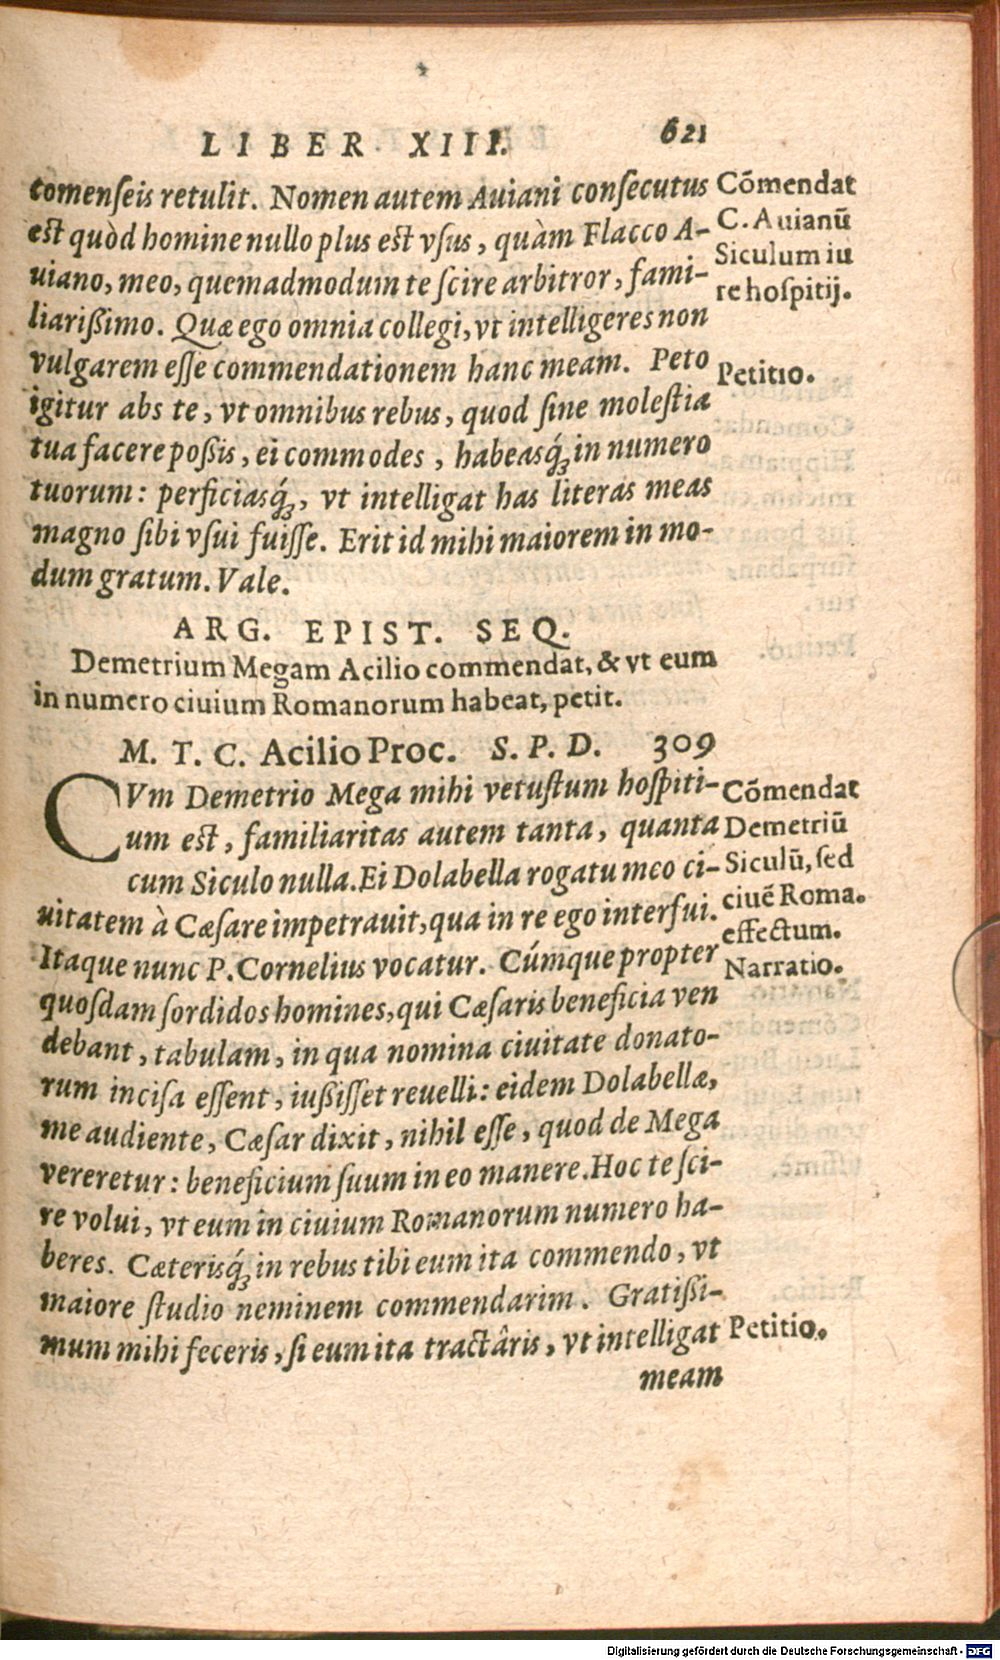 LIBER XIII. 621
comenſeis retulit. Nomen autem Auiani conſecutus
eſt quòd homine nullo plus eſt vſus, quàm Flacco A-
uiano, meo, quemadmodum te ſcire arbitror, fami-
liarißimo. Quæ ego omnia collegi, vt intelligeres non
vulgarem eſſe commendationem hanc meam. Peto
igitur abs te, vt omnibus rebus, quod ſine moleſtia
tua facere poßis, ei commodes, habeasq́; in numero
tuorum: perficiasq́;, vt intelligat has literas meas
magno ſibi vſui fuiſſe. Erit id mihi maiorem in mo-
dum gratum. Vale.
Cõmendat
C. Auianũ
Siculum iu
re hoſpitij.
Petitio.
ARG. EPIST. SEQ.
Demetrium Megam Acilio commendat, & vt eum
in numero ciuium Romanorum habeat, petit.
M. T. C. Acilio Proc. S. P. D. 309
CVm Demetrio Mega mihi vetuſtum hoſpiti-
um eſt, familiaritas autem tanta, quanta
cum Siculo nulla. Ei Dolabella rogatu meo ci-
uitatem à Cæſare impetrauit, qua in re ego interfui.
Itaque nunc P. Cornelius vocatur. Cúmque propter
quoſdam ſordidos homines, qui Cæſaris beneficia ven
debant, tabulam, in qua nomina ciuitate donato-
rum inciſa eſſent, iußiſſet reuelli: eidem Dolabellæ,
me audiente, Cæſar dixit, nihil eſſe, quod de Mega
vereretur: beneficium ſuum in eo manere. Hoc te ſci-
re volui, vt eum in ciuium Romanorum numero ha-
beres. Cæterisq́; in rebus tibi eum ita commendo, vt
maiore ſtudio neminem commendarim. Gratißi-
mum mihi feceris, ſi eum ita tractâris, vt intelligat
meam
Cõmendat
Demetriũ
Siculũ, ſed
ciuẽ Roma.
effectum.
Narratio.
Petitio.
Digitalisierung gefördert durch die Deutsche Forschungsgemeinschaft - DFG